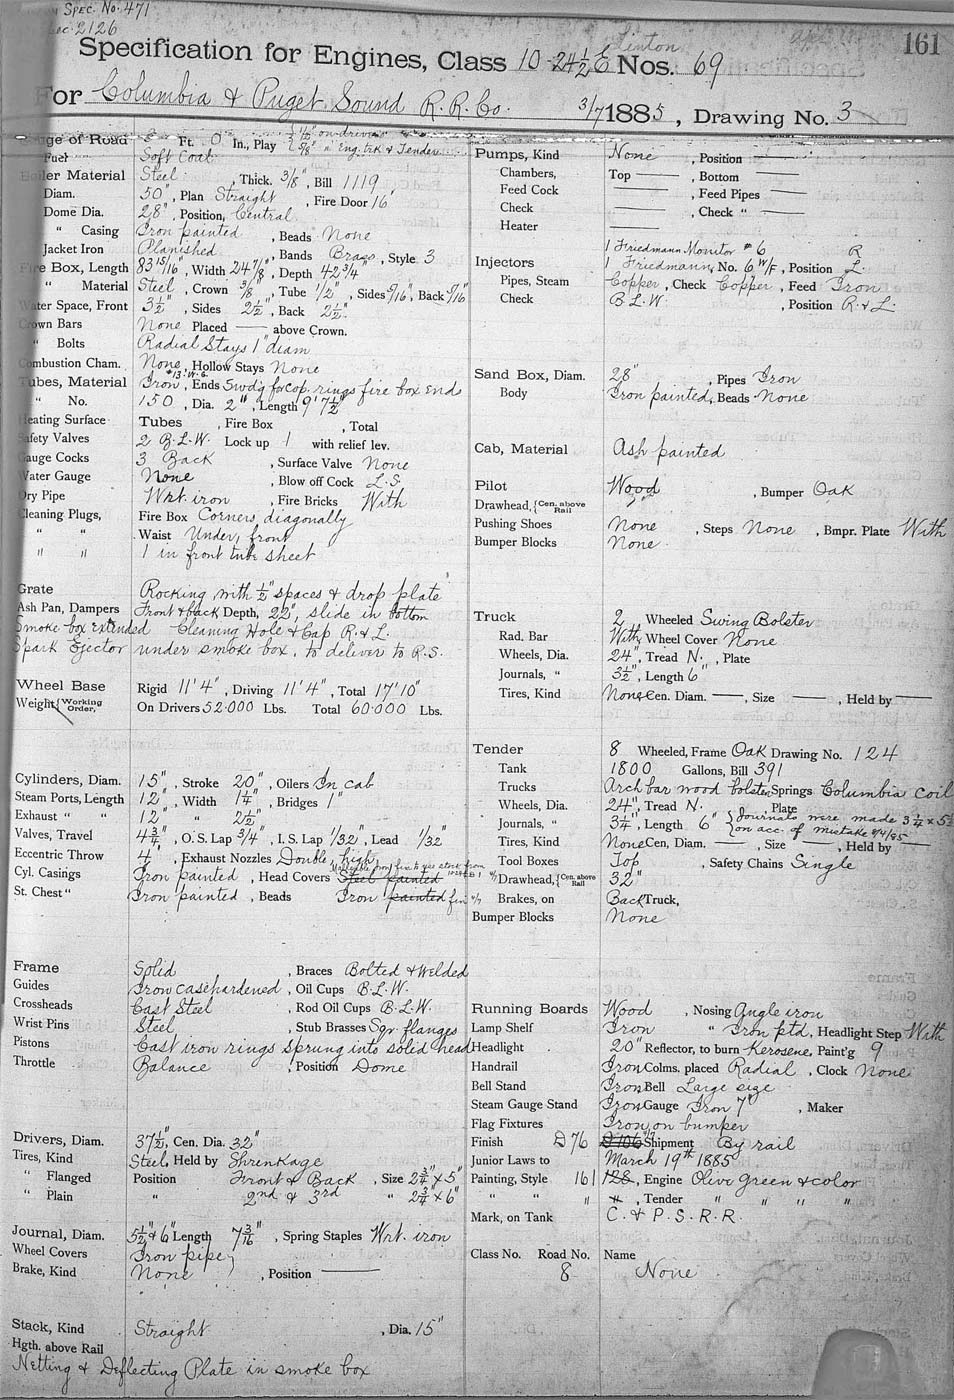 Spec. No. 471
2126
161
Specification for Engines, Class 10-24½ E Nos. 69
For Columbia & Puget Sound R.R. Co. 3/7 1885, Drawing No. 3
Gauge of Road 3 Ft. 0 In., Play
Fuel Soft Coal
Boiler Material Steel, Thick. 3/8", Bill 1119
Diam. 50", Plan Straight, Fire Door 16"
Dome Dia. 28", Position, Central
" Casing Iron painted, Beads None
Jacket Iron Planished, Bands Brass, Style 3
Fire Box, Length 83 15/16", Width 24 7/8", Depth 42 3/4"
" Material Steel, Crown 3/8", Tube 1/2", Sides 5/16", Back 5/16"
Water Space, Front 3½", Sides 2½", Back 2½"
Crown Bars None Placed — above Crown.
" Bolts Radial Stays 1" diam
Combustion Cham. None, Hollow Stays None
Tubes, Material Iron, Ends Swd'g for cop. rings fire box ends
" No. 150, Dia. 2", Length 9' 7½"
Heating Surface Tubes , Fire Box , Total
Safety Valves 2 B.L.W. Lock up 1 with relief lev.
Gauge Cocks 3 Back, Surface Valve None
Water Gauge None, Blow off Cock L.S.
Dry Pipe Wrt. iron, Fire Bricks With
Cleaning Plugs, Fire Box Corners diagonally
" " Waist Under, front
" " 1 in front tube sheet
Grate Rocking with ½" spaces & drop plate
Ash Pan, Dampers Front & back Depth, 22", slide in bottom
Smoke box extended Cleaning Hole & Cap R. & L.
Spark Ejector under smoke box, to deliver to R.S.
Wheel Base Rigid 11' 4", Driving 11' 4", Total 17' 10"
Weight {Working Order, On Drivers 52.000 Lbs. Total 60.000 Lbs.
Cylinders, Diam. 15", Stroke 20", Oilers In cab
Steam Ports, Length 12", Width 1¼", Bridges 1"
Exhaust " " 12" " 2½"
Valves, Travel 4¾", O.S. Lap 3/4", I.S. Lap 1/32", Lead 1/32"
Eccentric Throw 4", Exhaust Nozzles Double, high
Cyl. Casings Iron painted, Head Covers Steel painted
St. Chest " Iron painted, Beads Iron painted
Frame Solid, Braces Bolted & Welded
Guides Iron casehardened, Oil Cups B.L.W.
Crossheads Cast Steel, Rod Oil Cups B.L.W.
Wrist Pins Steel, Stub Brasses Sqr. flanges
Pistons Cast iron rings sprung into solid head
Throttle Balance, Position Dome
Drivers, Diam. 37½", Cen. Dia. 32"
Tires, Kind Steel, Held by Shrinkage
" Flanged Position Front & Back, Size 2¾" x 5"
" Plain " 2nd & 3rd " 2¾" x 6"
Journal, Diam. 5½" & 6" Length 7 3/16", Spring Staples Wrt. iron
Wheel Covers Iron pipe
Brake, Kind None, Position —
Stack, Kind Straight, Dia. 15"
Hgth. above Rail
Netting & Deflecting Plate in smoke box
Pumps, Kind None, Position —
Chambers, Top —, Bottom —
Feed Cock —, Feed Pipes —
Check —, Check " —
Heater —
1 Friedmann Monitor # 6 R
Injectors 1 Friedmann, No. 6 , Position L.
Pipes, Steam Copper, Check Copper, Feed Iron
Check B.L.W. , Position R. & L.
Sand Box, Diam. 28", Pipes Iron
Body Iron painted, Beads None
Cab, Material Ash painted
Pilot Wood, Bumper Oak
Drawhead, {Cen. above Rail
Pushing Shoes None, Steps None, Bmpr. Plate With
Bumper Blocks None
Truck 2 Wheeled Swing Bolster
Rad. Bar With, Wheel Cover None
Wheels, Dia. 24", Tread N., Plate
Journals, " 3½", Length 6"
Tires, Kind None, Cen. Diam. —, Size —, Held by —
Tender 8 Wheeled, Frame Oak Drawing No. 124
Tank 1800 Gallons, Bill 391
Trucks Arch bar wood bolster, Springs Columbia coil
Wheels, Dia. 24", Tread N. Plate
Journals, " 3¼", Length 6" {Journals were made 3¼ x 5½ on acc. of mistake
Tires, Kind None Cen, Diam. —, Size —, Held by —
Tool Boxes Top, Safety Chains Single
Drawhead, {Cen. above Rail 32"
Brakes, on Back Truck,
Bumper Blocks None
Running Boards Wood, Nosing Angle iron
Lamp Shelf Iron " Iron ptd, Headlight Step With
Headlight 20" Reflector, to burn Kerosene, Paint'g 9
Handrail Iron Colms, placed Radial, Clock None
Bell Stand Iron Bell Large size
Steam Gauge Stand Iron Gauge Iron 7" , Maker
Flag Fixtures Iron, on bumper
Finish D 76 D 106 Shipment By rail
Junior Laws to March 19th 1885
Painting, Style 161 128, Engine Olive Green & color
" " #, Tender " " "
Mark, on Tank C. & P. S. R. R.
Class No. Road No. Name
8 None